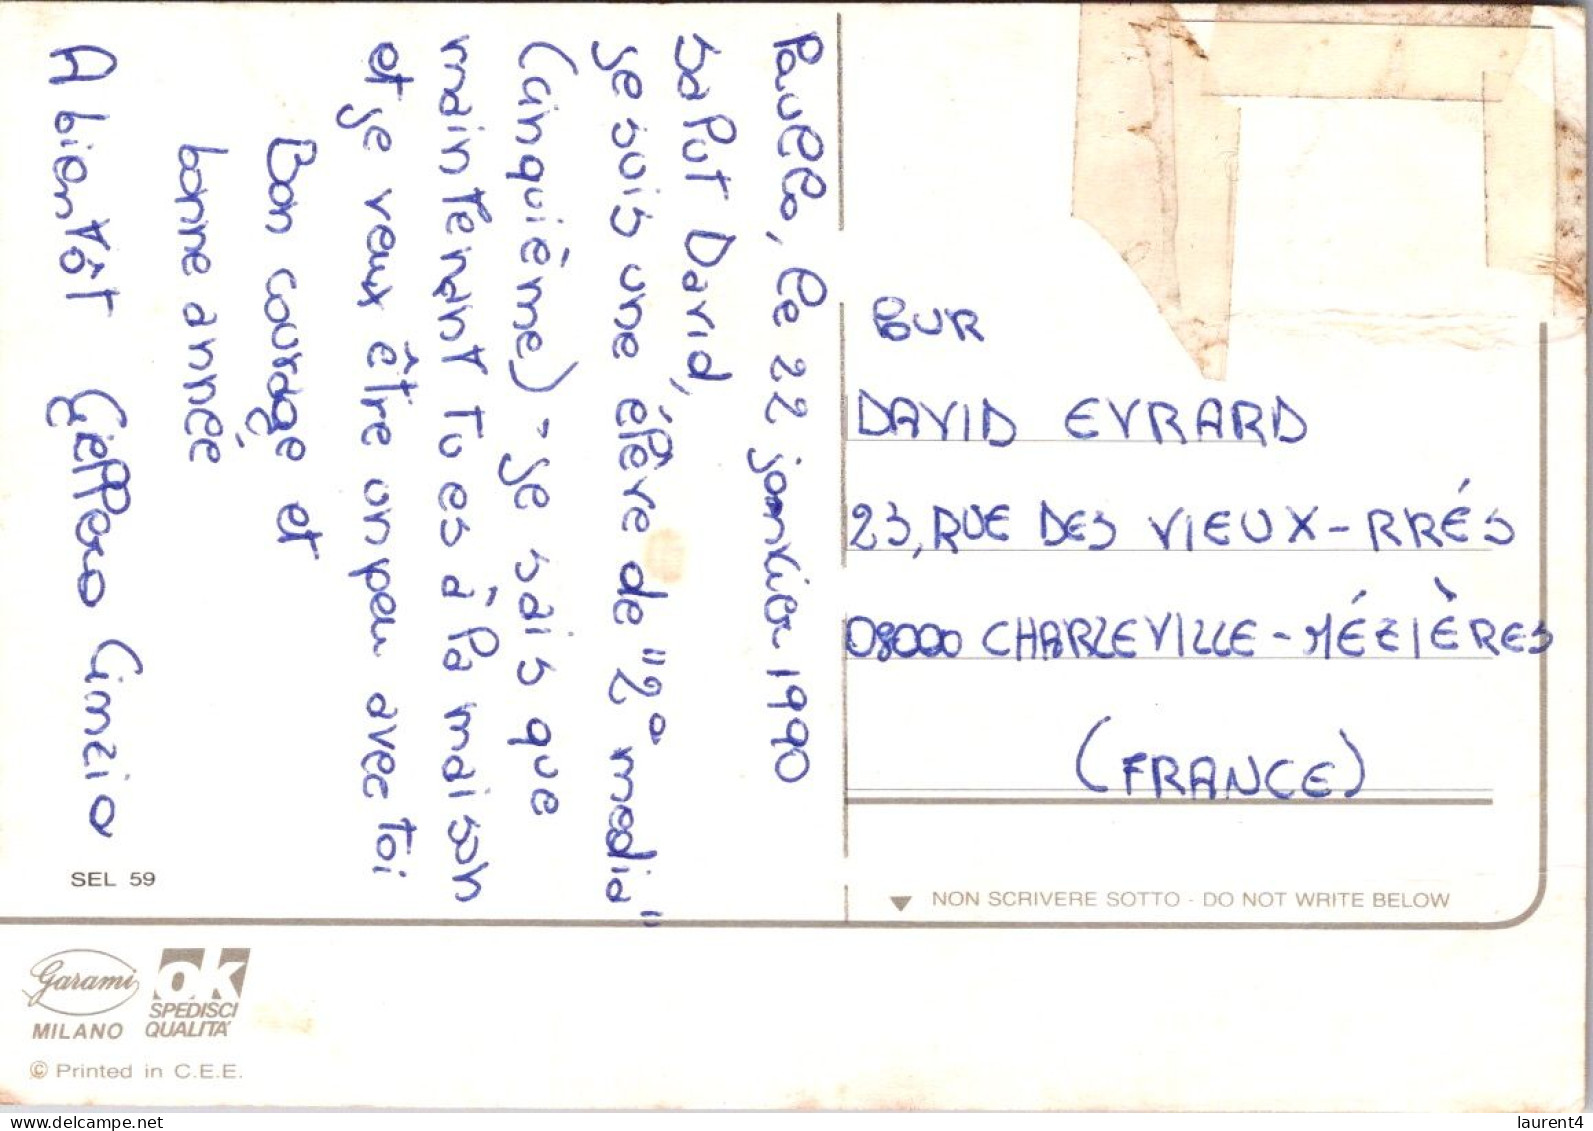 Paullo, le 22 janvier 1990
Salut David,
je suis une élève de "2° media"
(Cinquième) - je sais que
maintenant tu es à la maison
et je veux être un peu avec toi
Bon courage et
bonne année
A bientôt Cinzia
POUR
DAVID EVRARD
23, RUE DES VIEUX-PRÉS
08000 CHARLEVILLE-MÉZIÈRES
(FRANCE)
SEL 59
NON SCRIVERE SOTTO - DO NOT WRITE BELOW
Garami
MILANO
ok
SPEDISCI
QUALITA'
© Printed in C.E.E.
laurent4